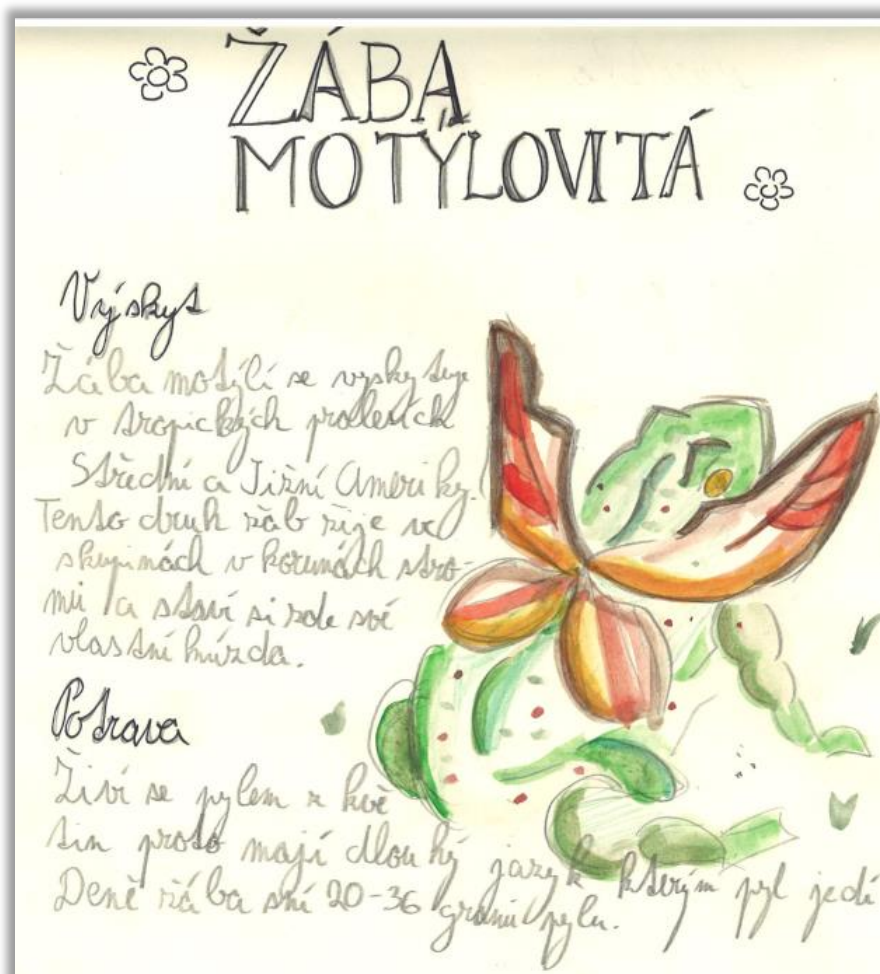 ŽÁBA
MOTÝLOVITÁ
Výskyt
Žába motýlí se vyskytuje
v tropických pralesích
Střední a Jižní Ameriky.
Tento druh žab žije ve
skupinách v korunách stro-
mů a staví si zde své
vlastní hnízda.
Potrava
Živí se pylem z kvě
tin proto mají dlouhý jazyk kterým pyl jedí
Deně žába sní 20-36 gramů pylu.